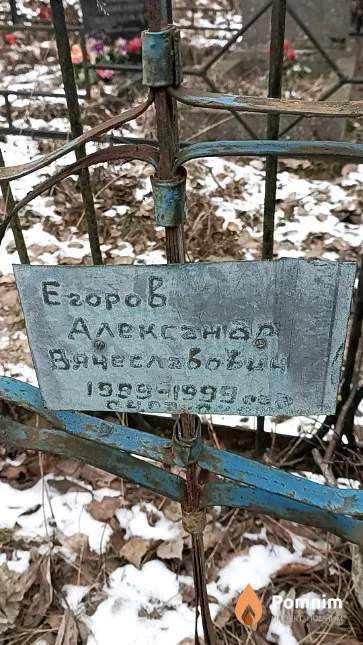 Егоров
Александр
Вячеславович
1999-1999
Pomnim